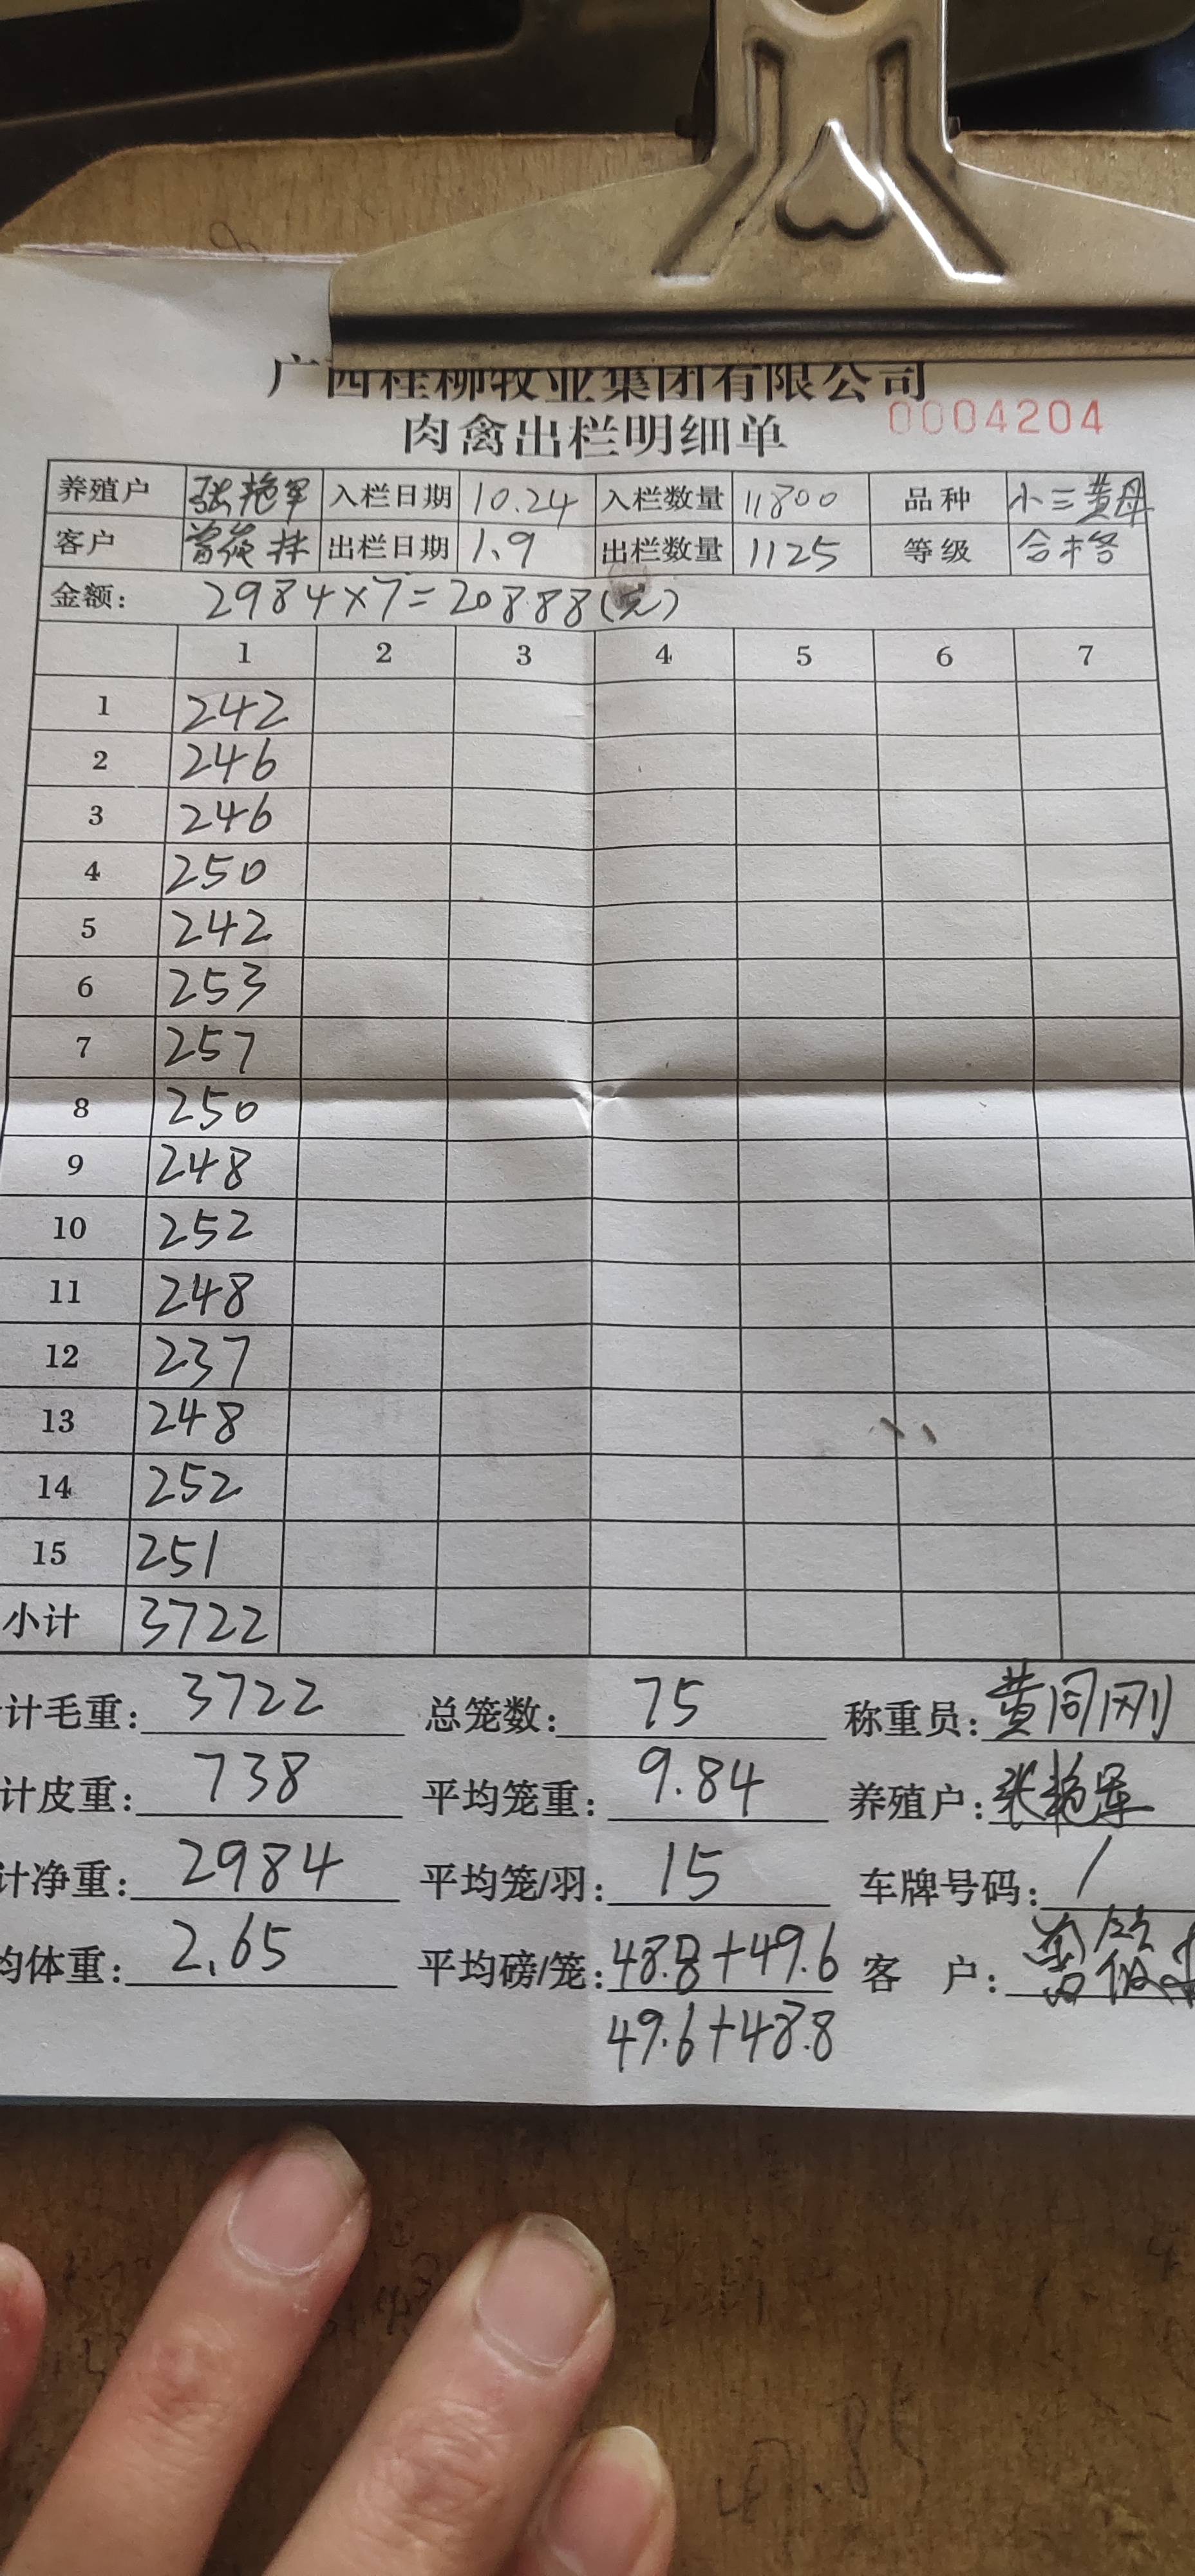 广西桂柳牧业集团有限公司
肉禽出栏明细单 0004204
养殖户 张艳军 入栏日期 10.24 入栏数量 11800 品种 小三黄母
客户 出栏日期 1.9 出栏数量 1125 等级 合格
金额: 2984×7=20888(元)
1 2 3 4 5 6 7
1 242
2 246
3 246
4 250
5 242
6 253
7 257
8 250
9 248
10 252
11 248
12 237
13 248
14 252
15 251
小计 3722
计毛重: 3722 总笼数: 75 称重员: 黄同刚
计皮重: 738 平均笼重: 9.84 养殖户: 张艳军
计净重: 2984 平均笼/羽: 15 车牌号码: /
均体重: 2.65 平均磅/笼: 48.8+49.6 客户:
49.6+48.8